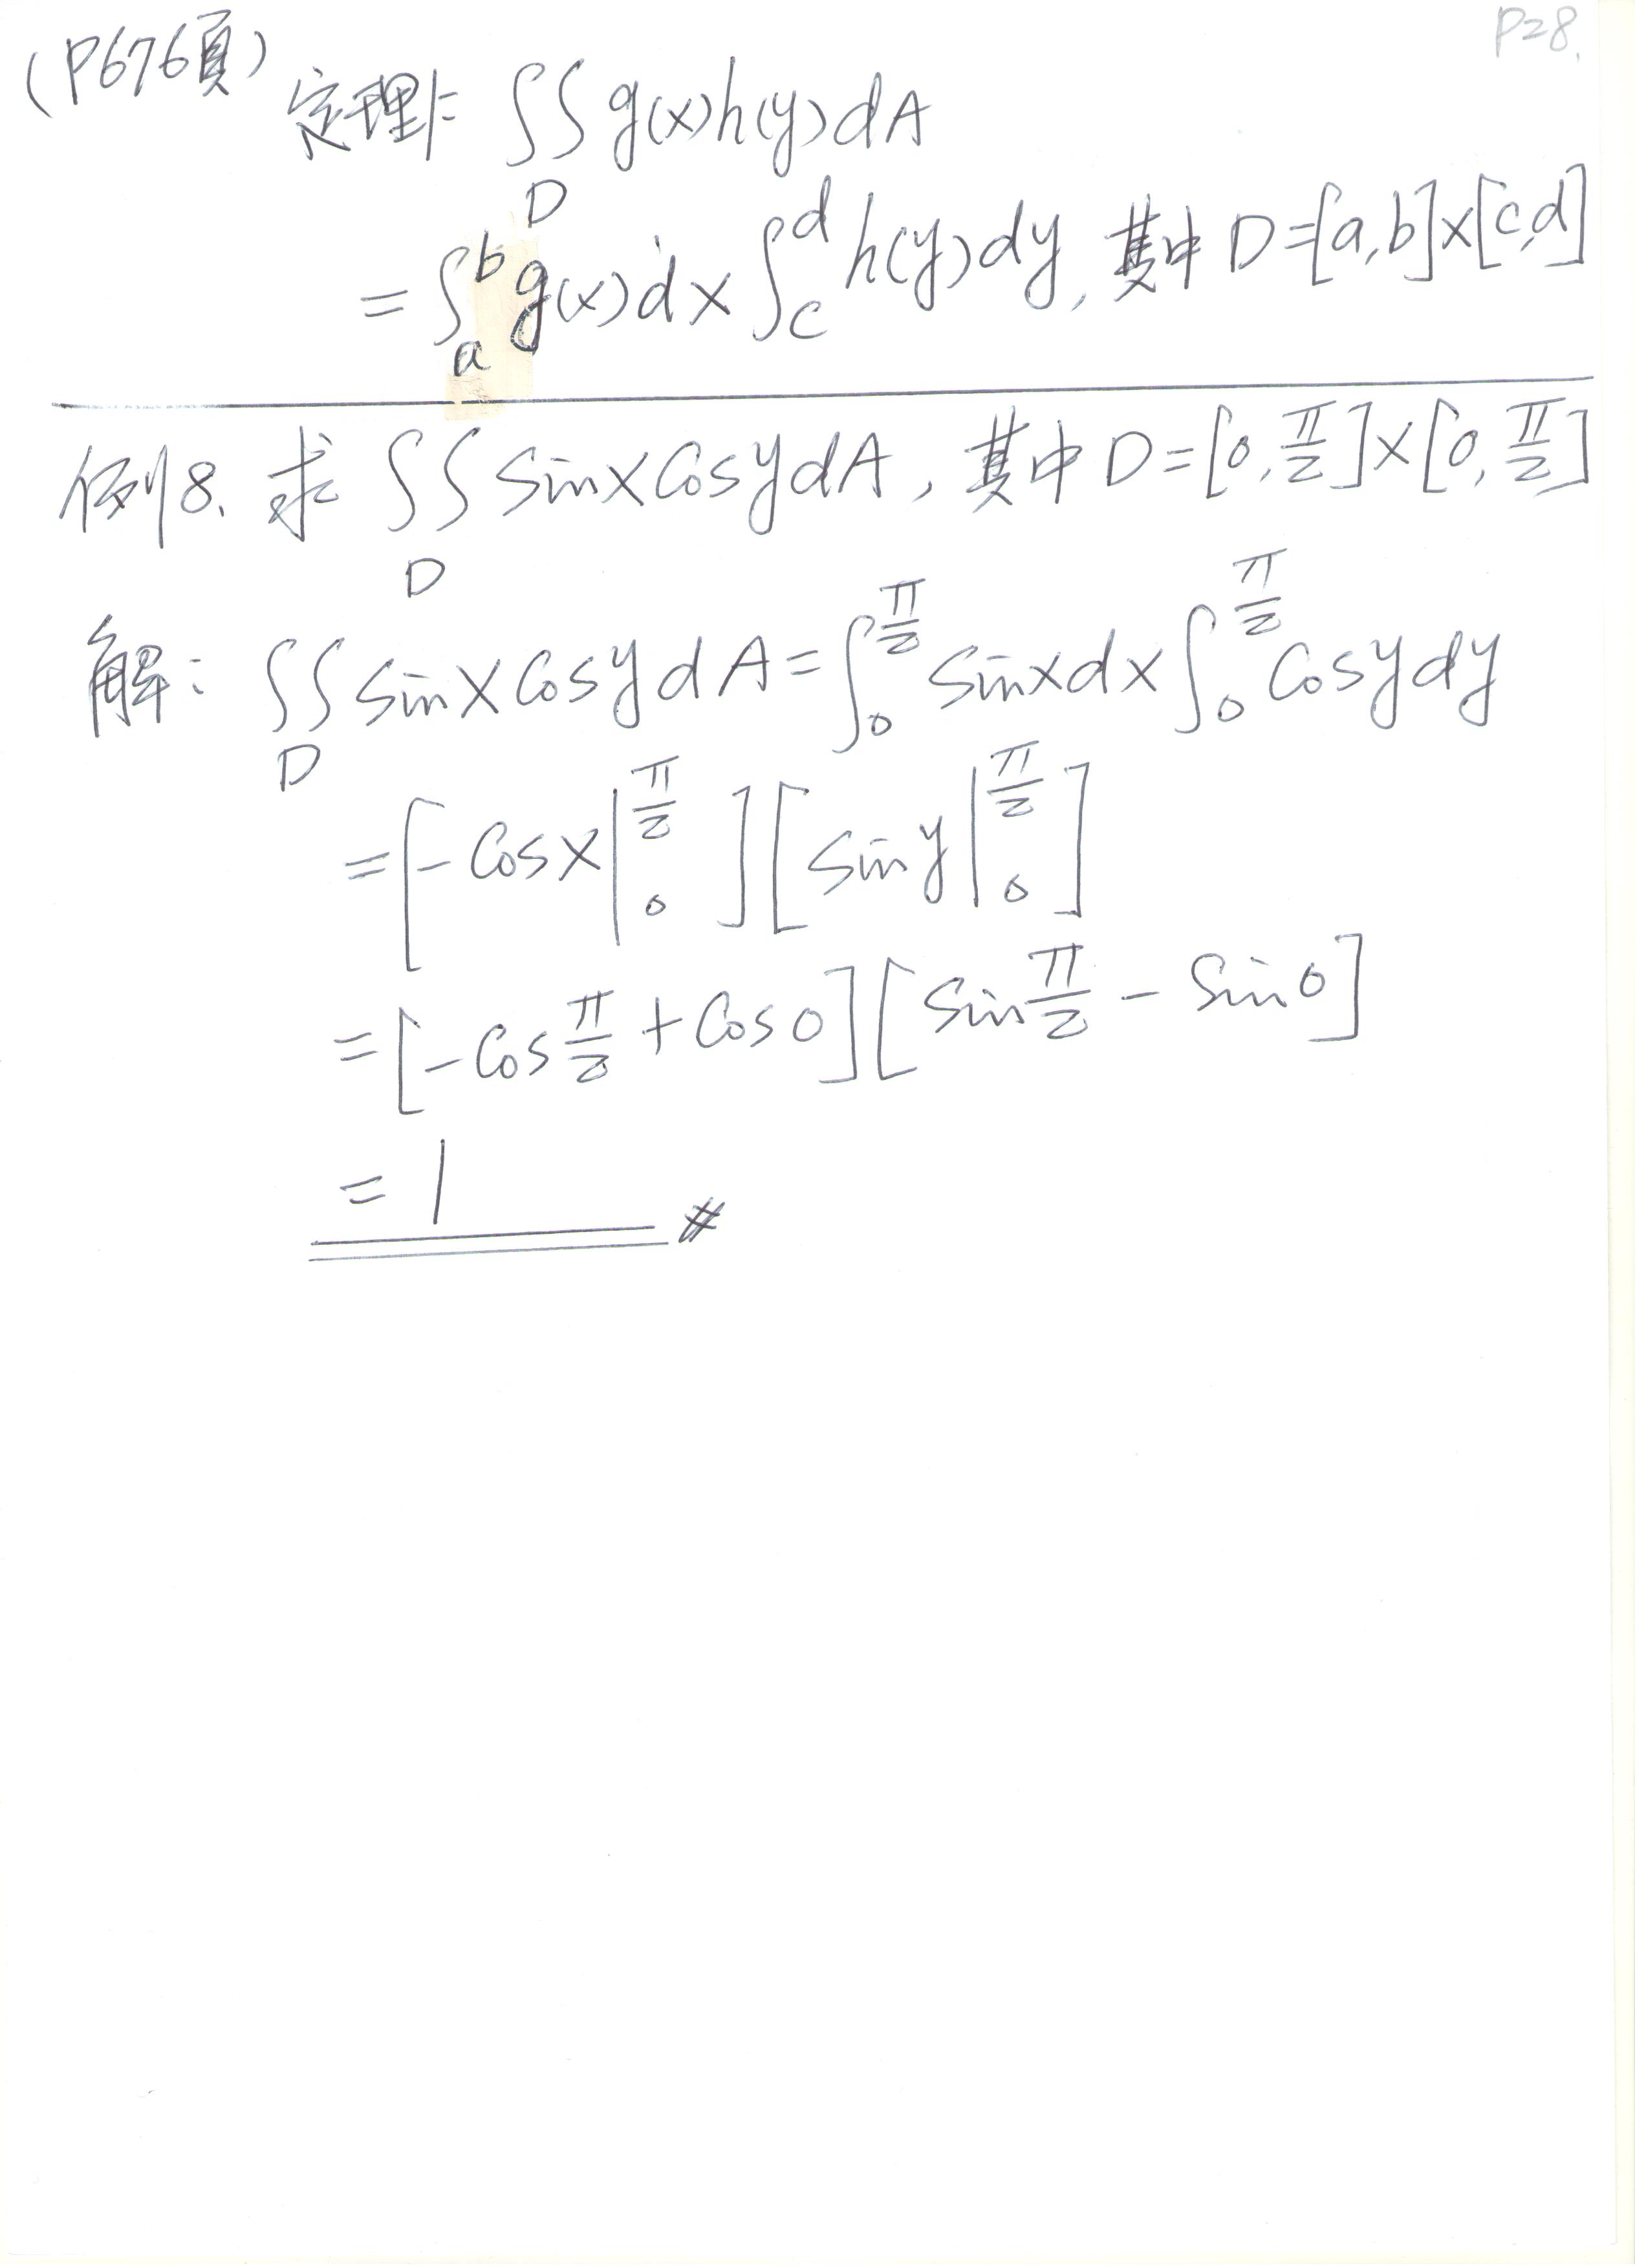 P28.
(P676頁)
定理: ∬_D g(x)h(y)dA
= ∫_a^b g(x)dx ∫_c^d h(y)dy, 其中 D=[a,b]×[c,d]
例8. 求 ∬_D sinxCosydA, 其中 D=[0,π/2]×[0,π/2]
解: ∬_D sinxCosydA = ∫_0^{π/2} sinxdx ∫_0^{π/2} Cosydy
= [-Cosx|_0^{π/2}][siny|_0^{π/2}]
= [-Cos π/2 + Cos0][Sin π/2 - Sin0]
= 1 #